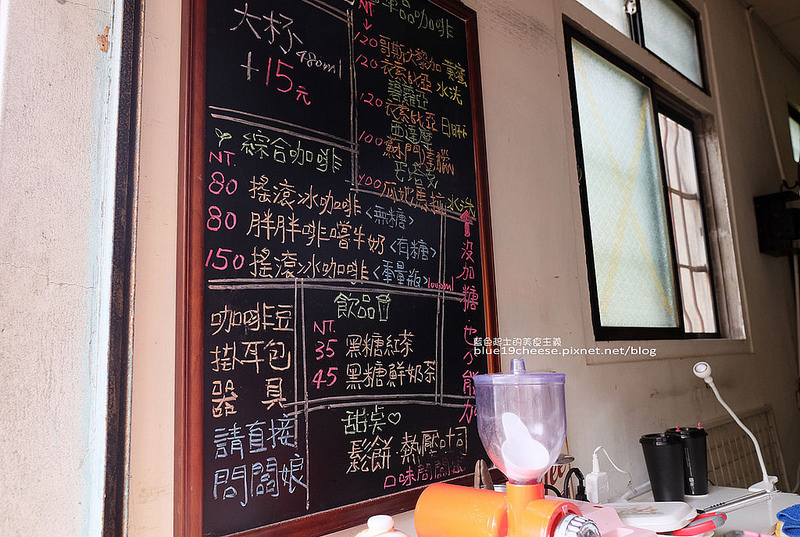 大杯 480ml
+15元
單品咖啡
NT.
120 哥斯大黎加 蜜處
120 衣索比亞 水洗
120 衣索比亞 日曬
100 蘇門答臘
100 瓜地馬拉 水洗
綜合咖啡
NT.
80 搖滾冰咖啡 <無糖>
80 胖胖啡嚐牛奶 <有糖>
150 搖滾冰咖啡 <重量瓶> 1000ml
沒加糖也不能加
咖啡豆
掛耳包
器具
請直接
問闆娘
飲品
NT.
35 黑糖紅茶
45 黑糖鮮奶茶
甜点♡
鬆餅 熱壓吐司
口味問闆娘
藍色起士的美食主義
blue19cheese.pixnet.net/blog